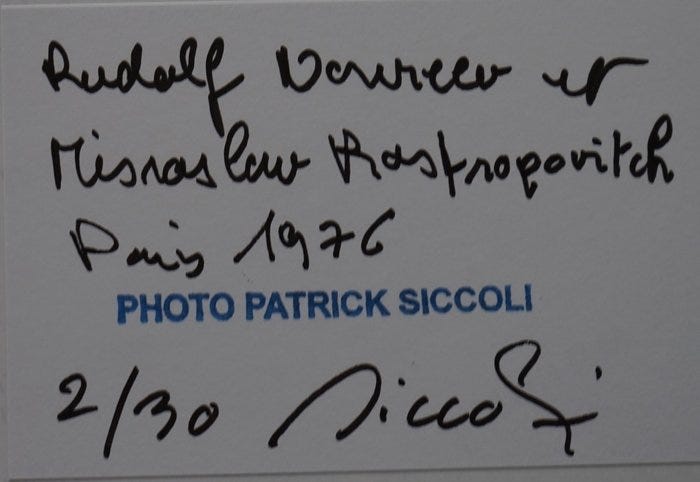 Rudolf Noureev et
Misroslaw Rostropovitch
Paris 1976
PHOTO PATRICK SICCOLI
2/30 Siccoli